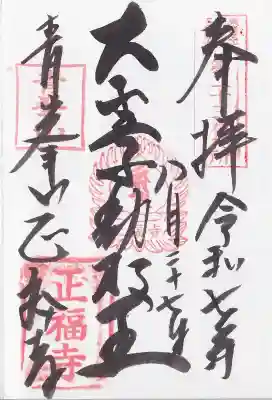 奉拝 令和七年
八月二十七日
大聖不動明王
青峯山 正福寺
正福寺